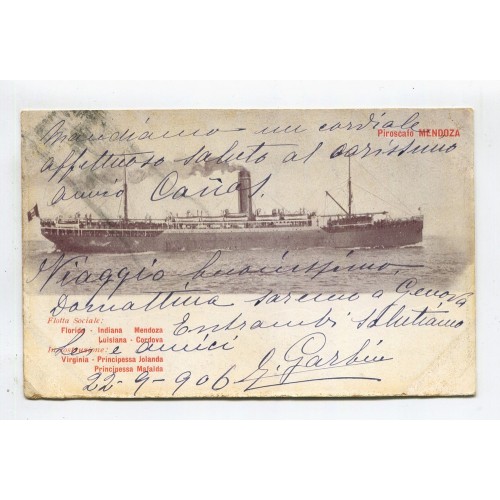 Piroscafo MENDOZA
Mandiamo un cordiale
affettuoso saluto al carissimo
amico Cañas.
Viaggio buonissimo.
Domattina saremo a Genova
Entrambi salutiamo
Lei e amici
G. Garbin
22-9-906
Flotta Sociale:
Florida - Indiana Mendoza
Luisiana - Cordova
In costruzione:
Virginia - Principessa Jolanda
Principessa Mafalda